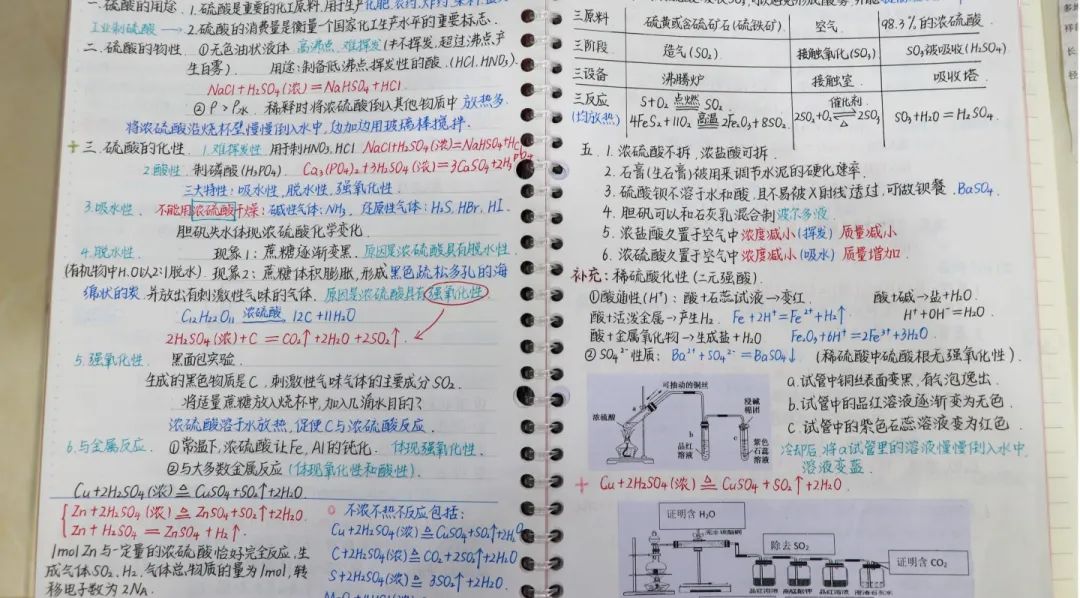 一.硫酸的用途. 1.硫酸是重要的化工原料,用于生产化肥,农药,炸药,染料,
工业制硫酸 → 2.硫酸的消费量是衡量一个国家化工生产水平的重要标志.
二.硫酸的物性 ①无色油状液体 高沸点,难挥发(才不挥发,超过沸点产
生白雾). 用途:制备低沸点挥发性的酸.(HCl,HNO₃).
NaCl+H₂SO₄(浓)=NaHSO₄+HCl
②ρ>ρ水. 稀释时将浓硫酸倒入其他物质中 放热多.
将浓硫酸沿烧杯壁慢慢倒入水中,边加边用玻璃棒搅拌.
+ 三.硫酸的化性 1.难挥发性 用于制HNO₃.HCl NaCl+H₂SO₄(浓)=NaHSO₄+HCl
2.酸性. 制磷酸(H₃PO₄). Ca₃(PO₄)₂+3H₂SO₄(浓)=3CaSO₄+2H₃PO₄
三大特性:吸水性,脱水性,强氧化性.
3.吸水性. 不能用浓硫酸干燥:碱性气体:NH₃, 还原性气体:H₂S,HBr,HI.
胆矾失水体现浓硫酸化学变化.
4.脱水性 现象1:蔗糖逐渐变黑.原因是浓硫酸具有脱水性
(有机物中H.O以2:1脱水). 现象2:蔗糖体积膨胀,形成黑色疏松多孔的海
绵状的炭.并放出有刺激性气味的气体.原因是浓硫酸具有强氧化性
C₁₂H₂₂O₁₁ 浓硫酸 12C+11H₂O
2H₂SO₄(浓)+C=CO₂↑+2H₂O+2SO₂↑
5.强氧化性. 黑面包实验.
生成的黑色物质是C.刺激性气味气体的主要成分SO₂.
将适量蔗糖放入烧杯中,加入几滴水目的?
浓硫酸溶于水放热,促使C与浓硫酸反应.
6.与金属反应. ①常温下,浓硫酸让Fe,Al的钝化. 体现强氧化性.
②与大多数金属反应(体现氧化性和酸性).
Cu+2H₂SO₄(浓)≜CuSO₄+SO₂↑+2H₂O
Zn+2H₂SO₄(浓)≜ZnSO₄+SO₂↑+2H₂O.
Zn+H₂SO₄=ZnSO₄+H₂↑.
1mol Zn与一定量的浓硫酸恰好完全反应,生
成气体SO₂、H₂.气体总物质的量为1mol,转
移电子数为2NA.
不浓不热不反应包括:
Cu+2H₂SO₄(浓)≜CuSO₄+SO₂↑+2H₂O
C+2H₂SO₄(浓)≜CO₂+2SO₂↑+2H₂O
S+2H₂SO₄(浓)≜3SO₂↑+2H₂O.
三原料 硫黄或含硫矿石(硫铁矿) 空气 98.3%的浓硫酸
三阶段 造气(SO₂) 接触氧化(SO₃) SO₃被吸收(H₂SO₄)
三设备 沸腾炉 接触室 吸收塔
三反应 S+O₂ 点燃 SO₂ 催化剂
(均放热) 4FeS₂+11O₂ 高温 2Fe₂O₃+8SO₂ 2SO₂+O₂ ⇌ 2SO₃ △ SO₃+H₂O=H₂SO₄
五. 1.浓硫酸不拆,浓盐酸可拆.
2.石膏(生石膏)被用来调节水泥的硬化速率.
3.硫酸钡不溶于水和酸,且不易被X射线透过,可做钡餐.BaSO₄.
4.胆矾可以和石灰乳混合制波尔多液.
5.浓盐酸久置于空气中浓度减小(挥发) 质量减小
6.浓硫酸久置于空气中浓度减小(吸水) 质量增加.
补充:稀硫酸化性(二元强酸).
①酸通性(H⁺):酸+石蕊试液→变红. 酸+碱→盐+H₂O.
酸+活泼金属→产生H₂. Fe+2H⁺=Fe²⁺+H₂↑. H⁺+OH⁻=H₂O.
酸+金属氧化物→生成盐+H₂O Fe₂O₃+6H⁺=2Fe³⁺+3H₂O
②SO₄²⁻性质: Ba²⁺+SO₄²⁻=BaSO₄↓ (稀硫酸中硫酸根无强氧化性).
可抽动的铜丝
浓硫酸
浸碱棉团
a
b
c
品红溶液
紫色石蕊溶液
a.试管中铜丝表面变黑,有气泡逸出.
b.试管中的品红溶液逐渐变为无色.
c.试管中的紫色石蕊溶液变为红色.
冷却后,将a试管里的溶液慢慢倒入水中,
溶液变蓝.
+ Cu+2H₂SO₄(浓)≜CuSO₄+SO₂↑+2H₂O.
证明含H₂O
无水硫酸铜
除去SO₂
证明含CO₂
品红溶液 高锰酸钾 品红溶液 澄清石灰水